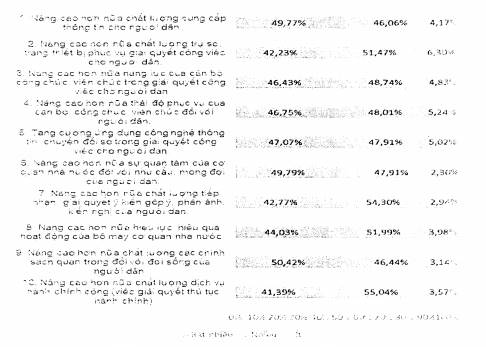 1. Nâng cao hơn nữa chất lượng cung cấp
thông tin cho người dân. 49,77% 46,06% 4,17%
2. Nâng cao hơn nữa chất lượng trụ sở,
trang thiết bị phục vụ giải quyết công việc
cho người dân. 42,23% 51,47% 6,30%
3. Nâng cao hơn nữa năng lực của cán bộ,
công chức, viên chức trong giải quyết công
việc cho người dân 46,43% 48,74% 4,83%
4. Nâng cao hơn nữa thái độ phục vụ của
cán bộ, công chức, viên chức đối với
người dân. 46,75% 48,01% 5,24%
5. Tăng cường ứng dụng công nghệ thông
tin, chuyển đổi số trong giải quyết công
việc cho người dân 47,07% 47,91% 5,02%
6. Nâng cao hơn nữa sự quan tâm của cơ
quan nhà nước đối với nhu cầu, mong đợi
của người dân. 49,79% 47,91% 2,30%
7. Nâng cao hơn nữa chất lượng tiếp
nhận, giải quyết ý kiến góp ý, phản ánh,
kiến nghị của người dân. 42,77% 54,30% 2,94%
8. Nâng cao hơn nữa hiệu lực, hiệu quả
hoạt động của bộ máy cơ quan nhà nước 44,03% 51,99% 3,98%
9. Nâng cao hơn nữa chất lượng các chính
sách quan trọng đối với đời sống của
người dân 50,42% 46,44% 3,14%
10. Nâng cao hơn nữa chất lượng dịch vụ
hành chính công (việc giải quyết thủ tục
hành chính) 41,39% 55,04% 3,57%
0% 10% 20% 30% 40% 50% 60% 70% 80% 90% 100%
Rất nhiều Nhiều Ít